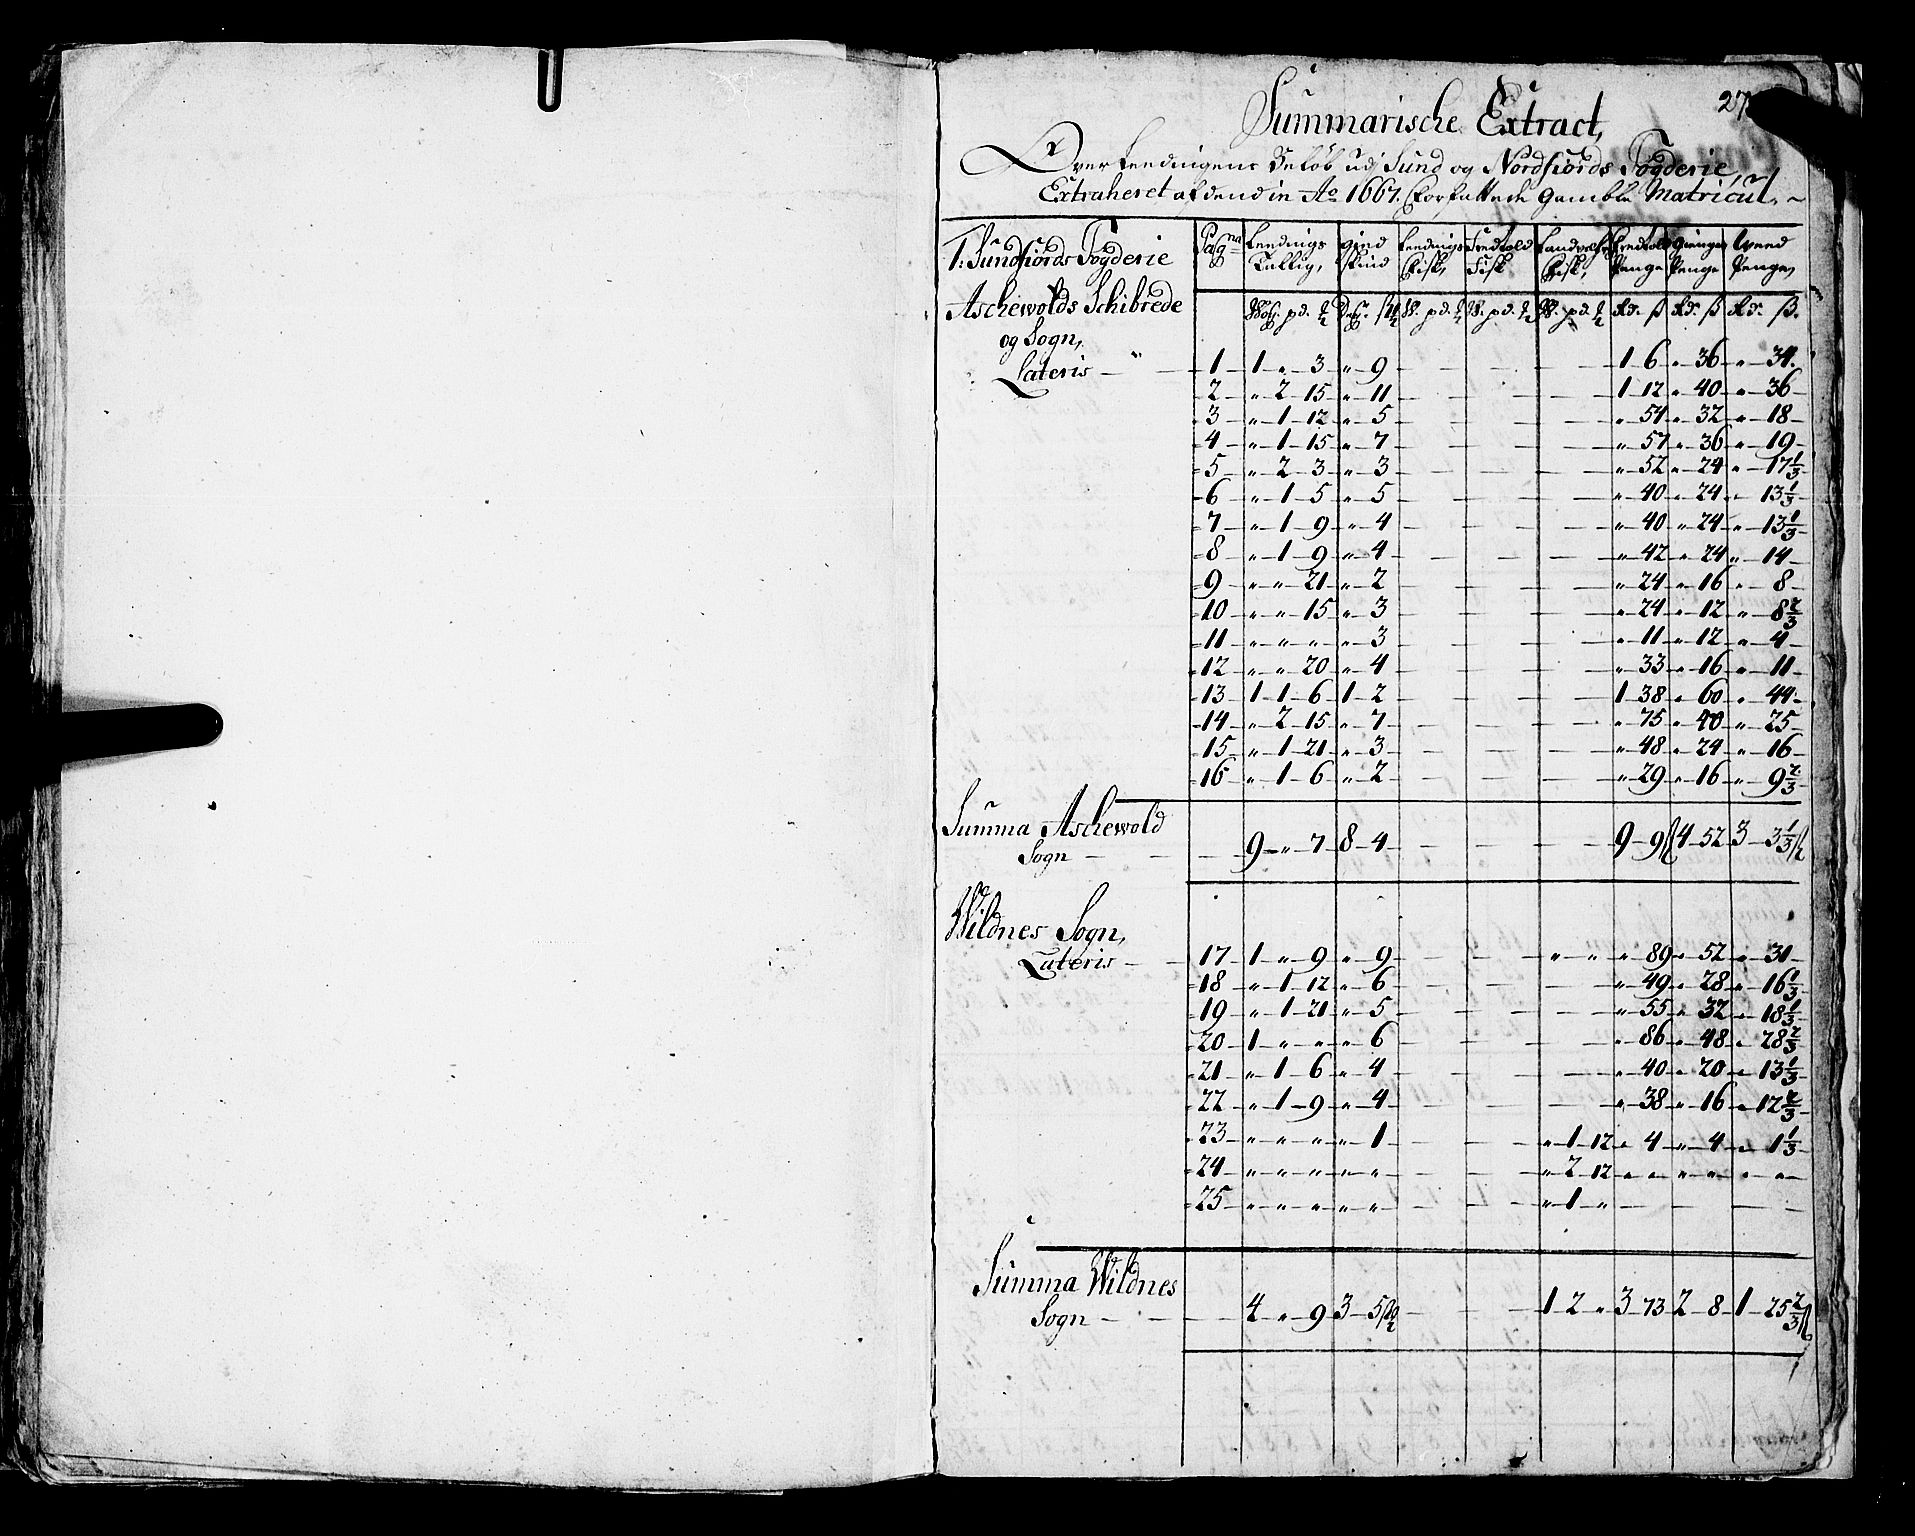 27
Summarische Extract,
Over Leedningens Beløb udj Sund og Nordfiords Fogderie,
Extraheret af dend in Ao 1667. forfattede gamble Matricul,
1: Sundfiords Fogderie | Pagna | Leednings Tallig, | gied skind | Leednings fisk, | Fredtold fisk | Landvahre fisk, | Fredtold Penge | Giengerd Penge | Weed Penge,
Aschewolds Schibrede
og Sogn,
Lateris — 1 | 1 " 3 | " 9 | — | — | — | 1 6 | " 36 | " 34
2 | " 2 15 | " 11 | — | — | — | 1 12 | " 40 | " 36
3 | " 1 12 | " 5 | — | — | — | " 54 | " 32 | " 18
4 | " 1 15 | " 7 | — | — | — | " 57 | " 36 | " 19
5 | " 2 3 | " 3 | — | — | — | " 52 | " 24 | " 17 1/3
6 | " 1 5 | " 5 | — | — | — | " 40 | " 24 | " 13 1/3
7 | " 1 9 | " 4 | — | — | — | " 40 | " 24 | " 13 1/3
8 | " 1 9 | " 4 | — | — | — | " 42 | " 24 | " 14
9 | " " 21 | " 2 | — | — | — | " 24 | " 16 | " 8
10 | " " 15 | " 3 | — | — | — | " 24 | " 12 | " 8 2/3
11 | " " " | " 3 | — | — | — | " 11 | " 12 | " 4
12 | " " 20 | " 4 | — | — | — | " 33 | " 16 | " 11
13 | 1 1 6 | 1 2 | — | — | — | 1 38 | " 60 | " 44
14 | " 2 15 | " 7 | — | — | — | " 75 | " 40 | " 25
15 | " 1 21 | " 3 | — | — | — | " 48 | " 24 | " 16
16 | " 1 6 | " 2 | — | — | — | " 29 | " 16 | " 9 2/3
Summa Aschewold
Sogn — | 9 " 7 | 8 4 | — | — | — | 9 9 ß | 4 52 | 3 3 1/3 ß
Wildnes Sogn,
Lateris — 17 | 1 " 9 | " 9 | — | — | " " | " 89 | " 52 | " 31
18 | " 1 12 | " 6 | — | — | — | " 49 | " 28 | " 16 1/3
19 | " 1 21 | " 5 | — | — | — | " 55 | " 32 | " 18 1/3
20 | 1 " " | " 6 | — | — | — | " 86 | " 48 | " 28 2/3
21 | " 1 6 | " 4 | — | — | — | " 40 | " 20 | " 13 1/3
22 | " 1 9 | " 4 | — | — | — | " 38 | " 16 | " 12 2/3
23 | " " " | " 1 | — | — | " 1 12 | " 4 | " 4 | " 1 1/3
24 | " " " | " " | — | — | " 2 12 | " " | " " | " "
25 | " " " | " " | — | — | " 1 " | — | — | —
Summa Wildnes
Sogn — | 4 " 9 | 3 5 | — | — | 1 2 " | 3 73 | 2 8 | 1 25 2/3 ß